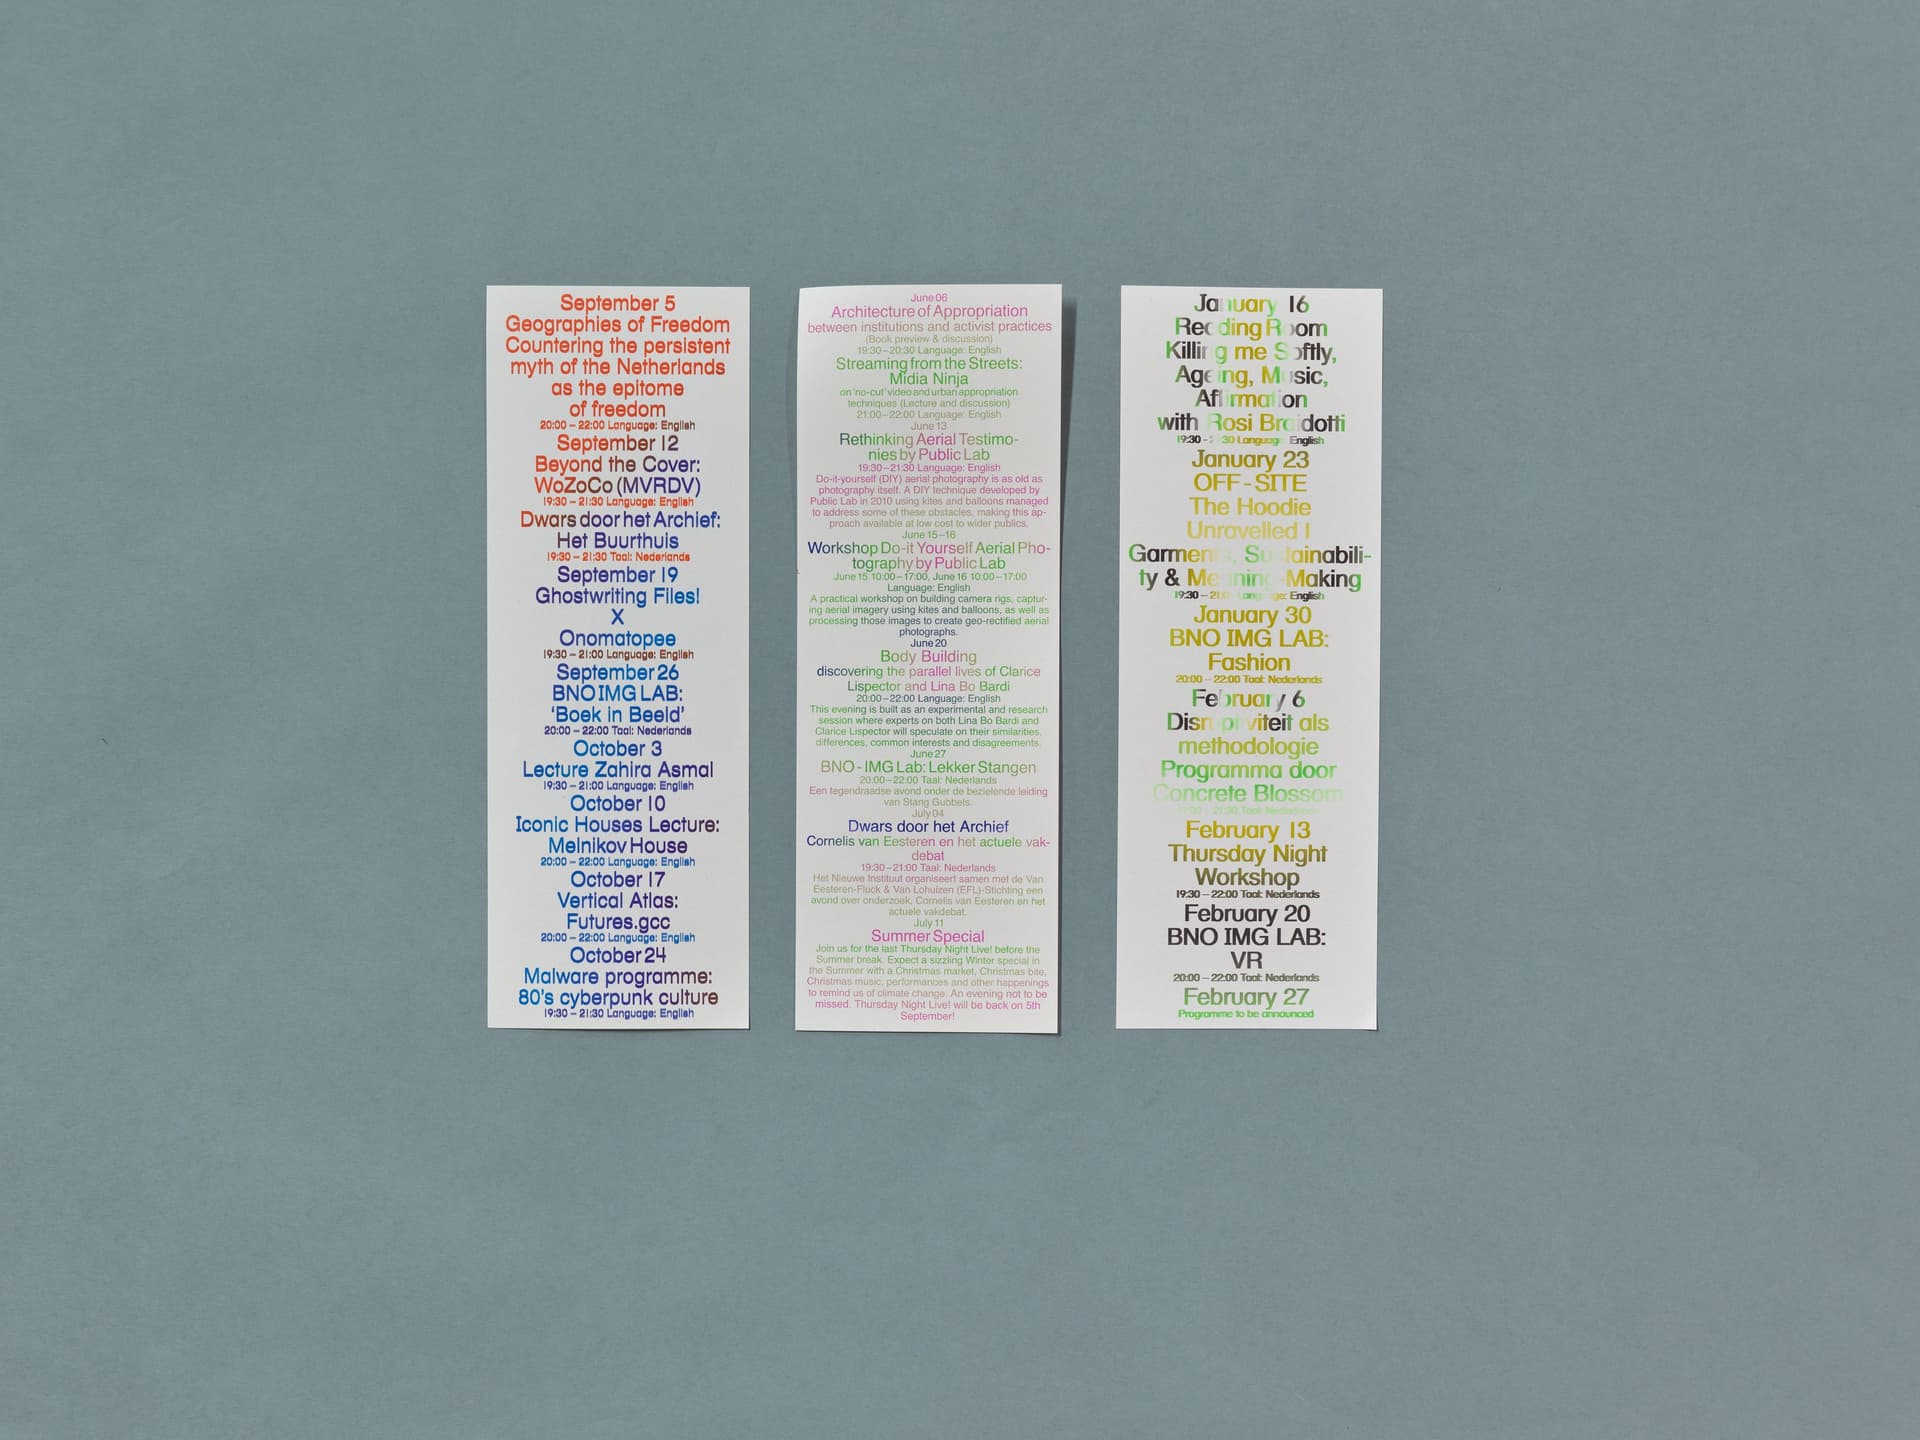 September 5
Geographies of Freedom
Countering the persistent
myth of the Netherlands
as the epitome
of freedom
20:00 – 22:00 Language: English
September 12
Beyond the Cover:
WoZoCo (MVRDV)
19:30 – 21:30 Language: English
Dwars door het Archief:
Het Buurthuis
19:30 – 21:30 Taal: Nederlands
September 19
Ghostwriting Files!
X
Onomatopee
19:30 – 21:00 Language: English
September 26
BNO IMG LAB:
‘Boek in Beeld’
20:00 – 22:00 Taal: Nederlands
October 3
Lecture Zahira Asmal
19:30 – 21:00 Language: English
October 10
Iconic Houses Lecture:
Melnikov House
20:00 – 22:00 Language: English
October 17
Vertical Atlas:
Futures.gcc
20:00 – 22:00 Language: English
October 24
Malware programme:
80’s cyberpunk culture
19:30 – 21:30 Language: English
June 06
Architecture of Appropriation
between institutions and activist practices
(Book preview & discussion)
19:30–20:30 Language: English
Streaming from the Streets:
Midia Ninja
on ‘no-cut’ video and urban appropriation
techniques (Lecture and discussion)
21:00–22:00 Language: English
June 13
Rethinking Aerial Testimo-
nies by Public Lab
19:30–21:30 Language: English
Do-it-yourself (DIY) aerial photography is as old as
photography itself. A DIY technique developed by
Public Lab in 2010 using kites and balloons managed
to address some of these obstacles, making this ap-
proach available at low cost to wider publics.
June 15–16
Workshop Do-it Yourself Aerial Pho-
tography by Public Lab
June 15 10:00–17:00, June 16 10:00–17:00
Language: English
A practical workshop on building camera rigs, captur-
ing aerial imagery using kites and balloons, as well as
processing those images to create geo-rectified aerial
photographs.
June 20
Body Building
discovering the parallel lives of Clarice
Lispector and Lina Bo Bardi
20:00–22:00 Language: English
This evening is built as an experimental and research
session where experts on both Lina Bo Bardi and
Clarice Lispector will speculate on their similarities,
differences, common interests and disagreements.
June 27
BNO - IMG Lab: Lekker Stangen
20:00–22:00 Taal: Nederlands
Een tegendraadse avond onder de bezielende leiding
van Stang Gubbels.
July 04
Dwars door het Archief
Cornelis van Eesteren en het actuele vak-
debat
19:30–21:00 Taal: Nederlands
Het Nieuwe Instituut organiseert samen met de Van
Eesteren-Fluck & Van Lohuizen (EFL)-Stichting een
avond over onderzoek, Cornelis van Eesteren en het
actuele vakdebat.
July 11
Summer Special
Join us for the last Thursday Night Live! before the
Summer break. Expect a sizzling Winter special in
the Summer with a Christmas market, Christmas bite,
Christmas music, performances and other happenings
to remind us of climate change. An evening not to be
missed. Thursday Night Live! will be back on 5th
September!
January 16
Reading Room
Killing me Softly,
Ageing, Music,
Affirmation
with Rosi Braidotti
19:30 - 21:30 Language: English
January 23
OFF-SITE
The Hoodie
Unravelled I
Garments, Sustainabili-
ty & Meaning-Making
19:30 – 21:30 Language: English
January 30
BNO IMG LAB:
Fashion
20:00 – 22:00 Taal: Nederlands
February 6
Disruptiviteit als
methodologie
Programma door
Concrete Blossom
21:30 Taal: Nederlands
February 13
Thursday Night
Workshop
19:30 – 22:00 Taal: Nederlands
February 20
BNO IMG LAB:
VR
20:00 – 22:00 Taal: Nederlands
February 27
Programme to be announced